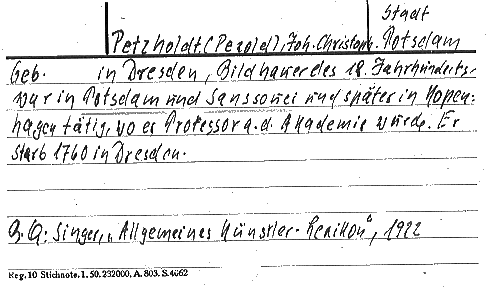 Stadt
Petzholdt (Pezold), Joh. Christoph. Potsdam
Geb. in Dresden, Bildhauer des 18. Jahrhunderts,
war in Potsdam und Sanssouci und später in Kopen-
hagen tätig, wo er Professor a. d. Akademie wurde. Er
starb 1760 in Dresden.
Singer, „Allgemeines Künstler-Lexikon", 1922
Reg. 10 Stichnote. 1. 50. 232000, A. 803. S. 4062